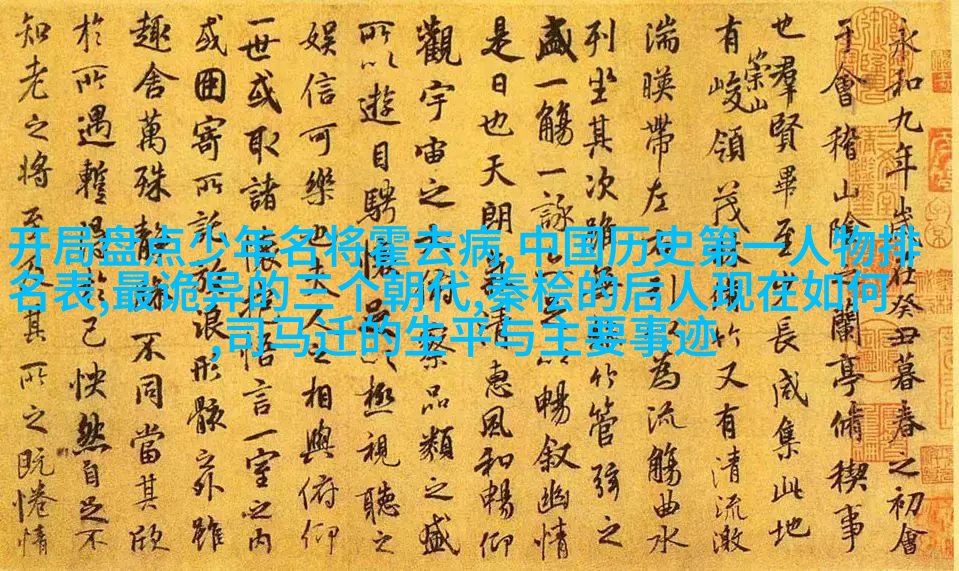 开局盘点少年名将霍去病,中国历史第一人物排
名表,最诡异的三个朝代,秦桧的后人现在如何
,司马迁的生平与主要事迹
永和九年歲在癸丑暮春之初會
于會稽山陰蘭亭脩稧事
也群賢畢至少長咸集此地
有崇山峻領茂林竹又有清流激
湍暎帶左右引以為流觴曲水
列坐其次雖無竹管弦之
盛一觴一詠亦足以暢叙幽情
是日也天朗清惠風和暢仰
觀宇宙之察品類之盛
所以遊目騁懷以極視聽之
娛信可樂也夫人之相與俯仰
一世或取諸懷抱悟言一室之內
或因寄所託放浪形骸之外雖
趣舍萬殊靜不同當其欣
於所遇暫得於己怏然自足不
知老之將至及其所之既惓情